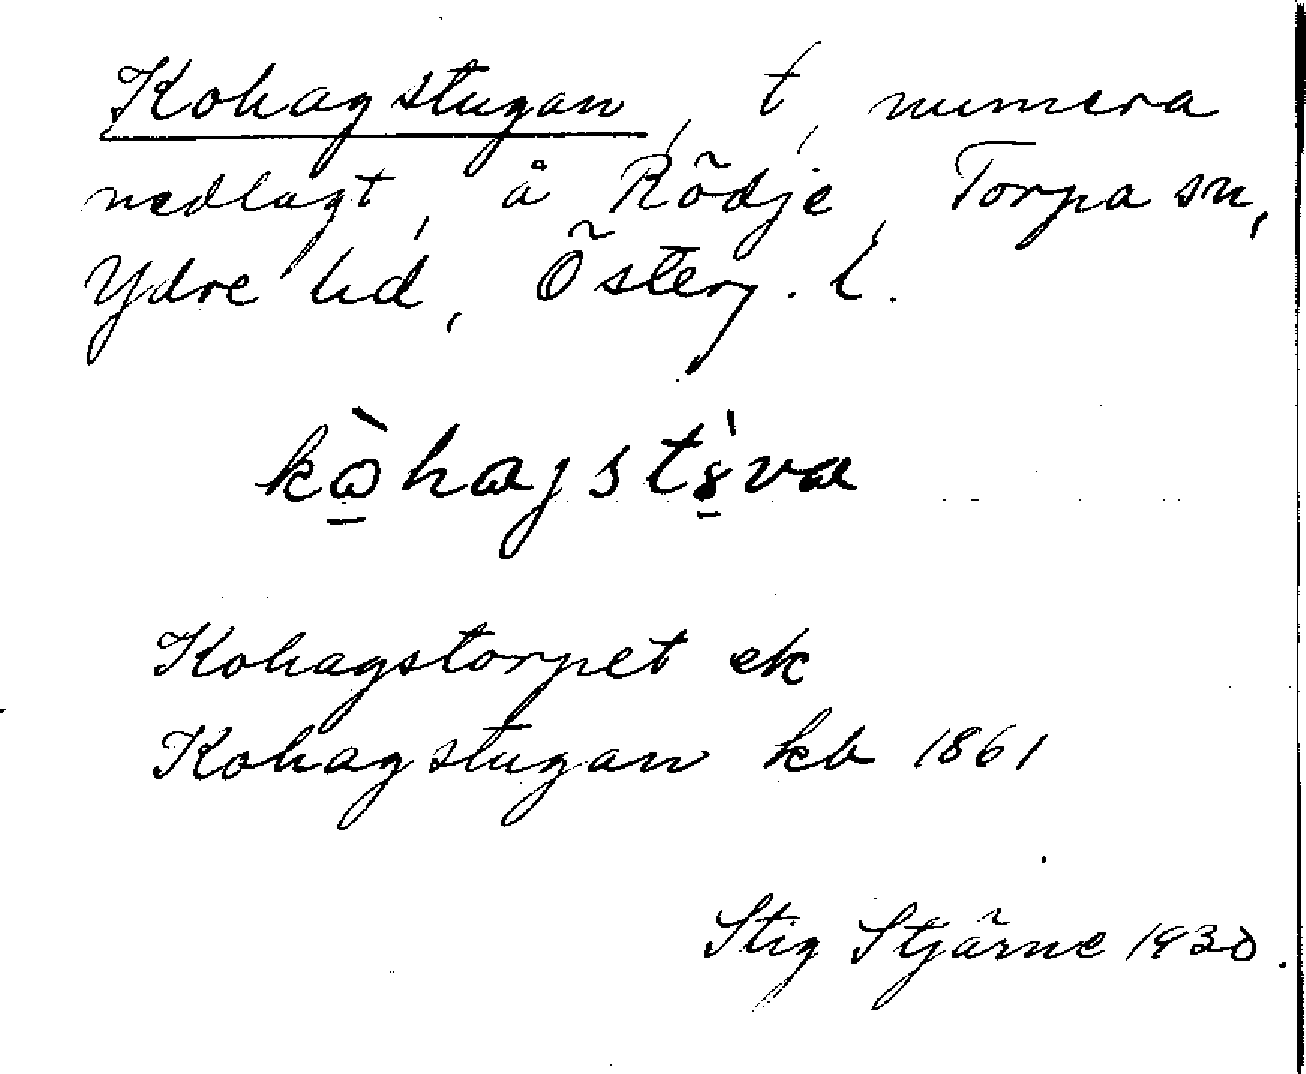 Kohagstugan, t, numera
nedlagt, å Rödje, Torpa sn,
Ydre hd, Österg. l.
kòhagstỳva
Kohagstorpet ek
Kohagstugan kb 1861
Stig Stjärne 1930.